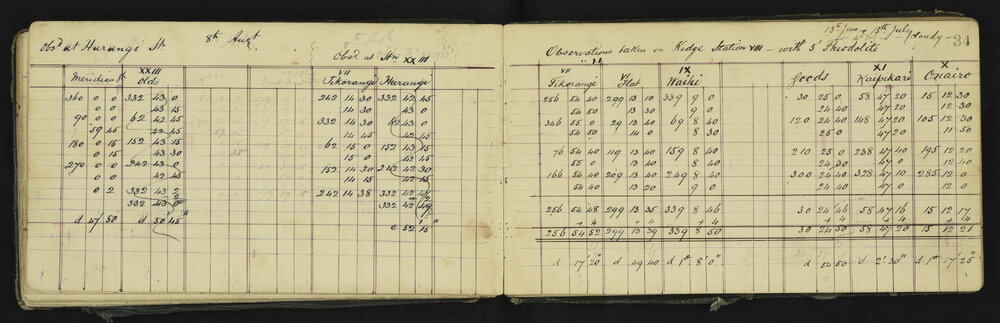 Obsd at Hurangi Stn. 8th Augt.
Obsd at Stn XXIII
Meridian Stn XXIII Olds
VII Tikorangi Hurangi
360 0 0 332 43 0 242 14 30 332 42 45
0 0 43 15 14 30 43 0
90 0 0 62 42 45 332 14 30 62 43 0
59 45 42 45 14 45 42 45
180 0 15 152 43 15 62 15 0 152 43 15
0 15 43 30 15 0 42 45
270 0 0 242 43 0 152 14 30 242 42 30
0 0 42 45 14 15 42 15
0 2 332 43 2 242 14 38 332 42
332 43 0 332 42 49
d 47 50 d 50 45"
e 52 15
13th June & 15th July Cloudy 34
Observations taken on Ridge Station VIII - with 5 Theodolite
VII Tikorangi VI Flat IX Waihi Goods XI Kaipikari X Onairo
256 54 40 299 13 10 339 9 0 30 25 0 58 47 20 15 12 30
54 50 13 30 9 0 24 40 47 20 12 30
346 55 0 29 13 40 69 8 40 120 24 40 148 47 20 105 12 30
54 50 14 0 8 30 25 0 47 20 11 50
76 54 40 119 13 40 159 8 40 210 25 0 238 47 40 195 12 20
55 0 13 40 8 40 24 30 47 0 12 40
166 54 40 209 13 40 249 8 40 300 24 40 328 47 10 285 12 0
54 40 13 20 9 0 24 40 47 0 12 0
256 54 48 299 13 35 339 8 46 30 24 46 58 47 16 15 12 17
+ 4 + 4 + 4 + 4
256 54 52 299 13 39 339 8 50 30 24 50 58 47 20 15 12 21
d 17' 20" d 49 40 d 1° 8' 0" d 54 50 d 2' 30" d 1° 17' 25"